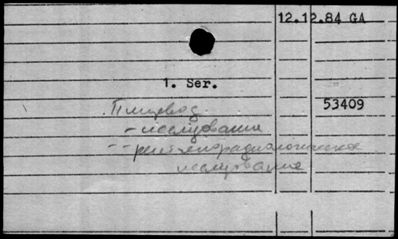 12.12.84 GA
1. Ser.
53409
Пищевод.
- исследование
-- рентгенорадиологическое
исследование